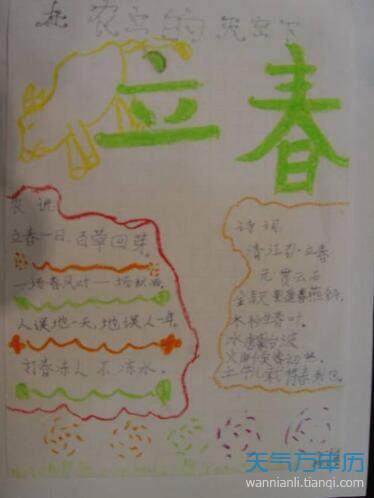 在农民的天空下
立春
农谚
立春一日,百草回芽。
一场春风叶一场秋雨。
人误地一天,地误人一年。
打春冻人不冻水。
诗词
清江引·立春
元·贯云石
金钗影摇春燕斜,
木杪生春叶。
水塘春始波,
火候春初热。
土牛儿载将春到也。
天气万年历
wannianli.tianqi.com